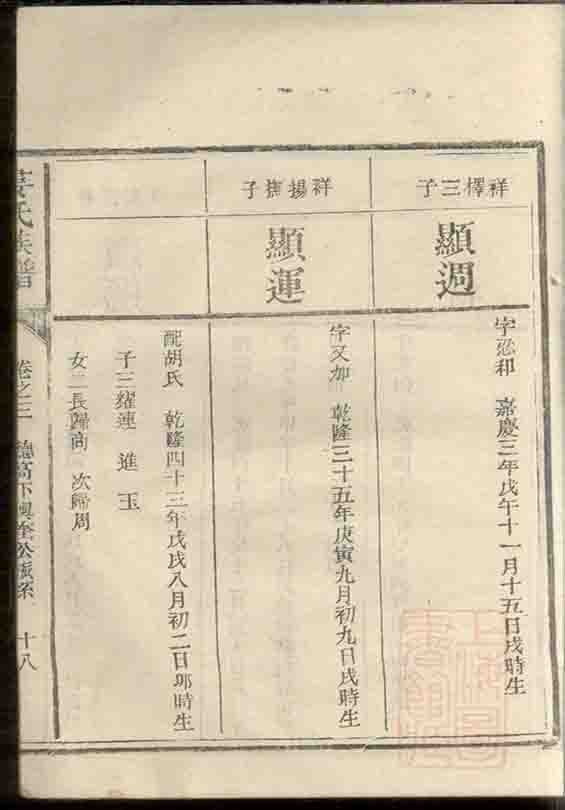 祥檡三子
顯週
字慫和　嘉慶三年戊午十一月十五日戌時生
祥揚撫子
顯運
字又加　乾隆三十五年庚寅九月初九日戌時生
配胡氏　乾隆四十三年戊戌八月初二日卯時生
子三耀連　進　玉
女二長歸高　次歸周
氏族譜
卷之三　德高下興奎公派系　十八